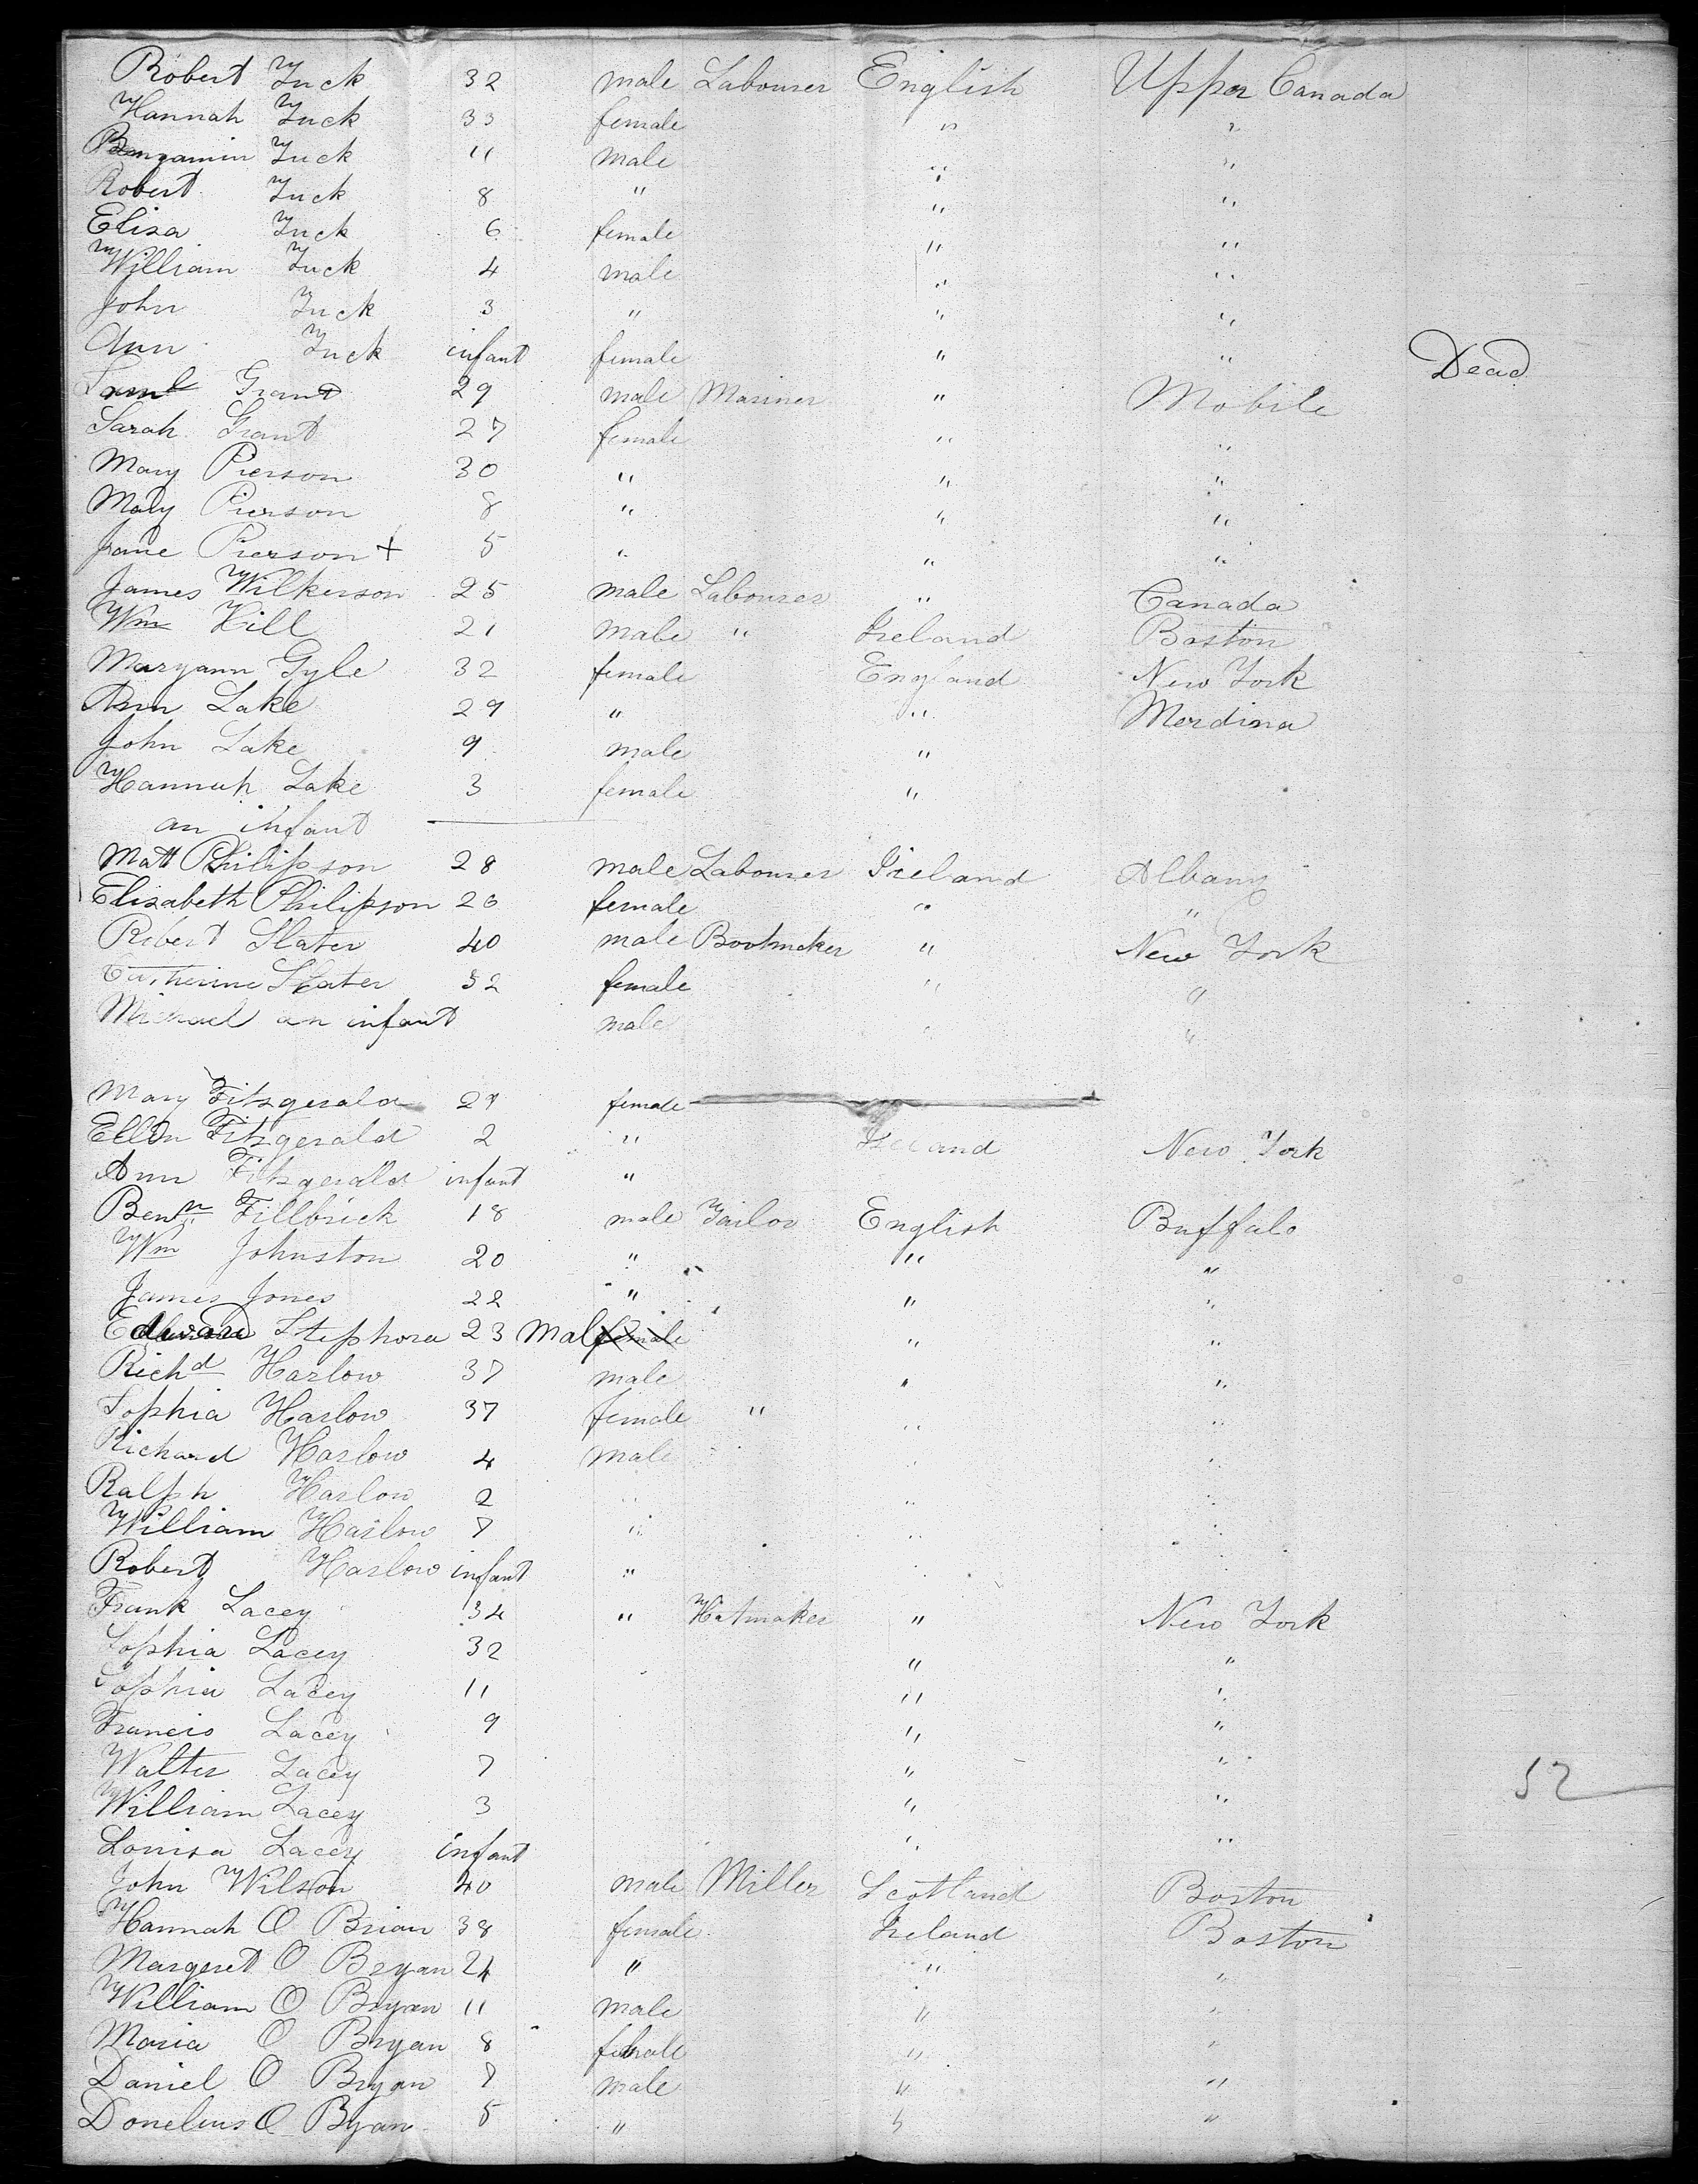 Robert Tuck 32 male Labourer English Upper Canada
Hannah Tuck 33 female " "
Benjamin Tuck 11 male " "
Robert Tuck 8 " " "
Elisa Tuck 6 female " "
William Tuck 4 male " "
John Tuck 3 " " "
Ann Tuck infant female " " Dead
Saml Grant 29 male Mariner " Mobile
Sarah Grant 27 female " "
Mary Pierson 30 " " "
Mary Pierson 8 " " "
Jane Pierson + 5 " " "
James Wilkerson 25 male Labourer " Canada
Wm Hill 21 male " Ireland Boston
Maryann Gyle 32 female England New York
Ann Lake 29 " " Merdina
John Lake 9 male "
Hannah Lake 3 female "
an infant
Matt Philipson 28 male Labourer Ireland Albany
Elisabeth Philipson 20 female " "
Robert Slater 40 male Bootmaker " New York
Catherine Slater 32 female " "
Michael an infant male " "
Mary Fitzgerald 29 female
Ellen Fitzgerald 2 " Ireland New York
Ann Fitzgerald infant "
Benn Fillbrick 18 male Tailor English Buffalo
Wm Johnston 20 " " "
James Jones 22 " " "
Edward Stephora 23 Male female " "
Richd Harlow 37 male " "
Sophia Harlow 37 female " " "
Richard Harlow 4 male " "
Ralph Harlow 2 " " "
William Harlow 7 " " "
Robert Harlow infant "
Frank Lacey 34 " Hatmaker " New York
Sophia Lacey 32 " "
Sophia Lacey 11 " "
Francis Lacey 9 " "
Walter Lacey 7 " "
William Lacey 3 " "
52
Louisa Lacey infant " "
John Wilson 40 male Miller Scotland Boston
Hannah O Brian 38 female Ireland Boston
Margeret O Bryan 24 " " "
William O Bryan 11 male " "
Maria O Bryan 8 female " "
Daniel O Bryan 7 male " "
Donelius O Byan 5 " " "